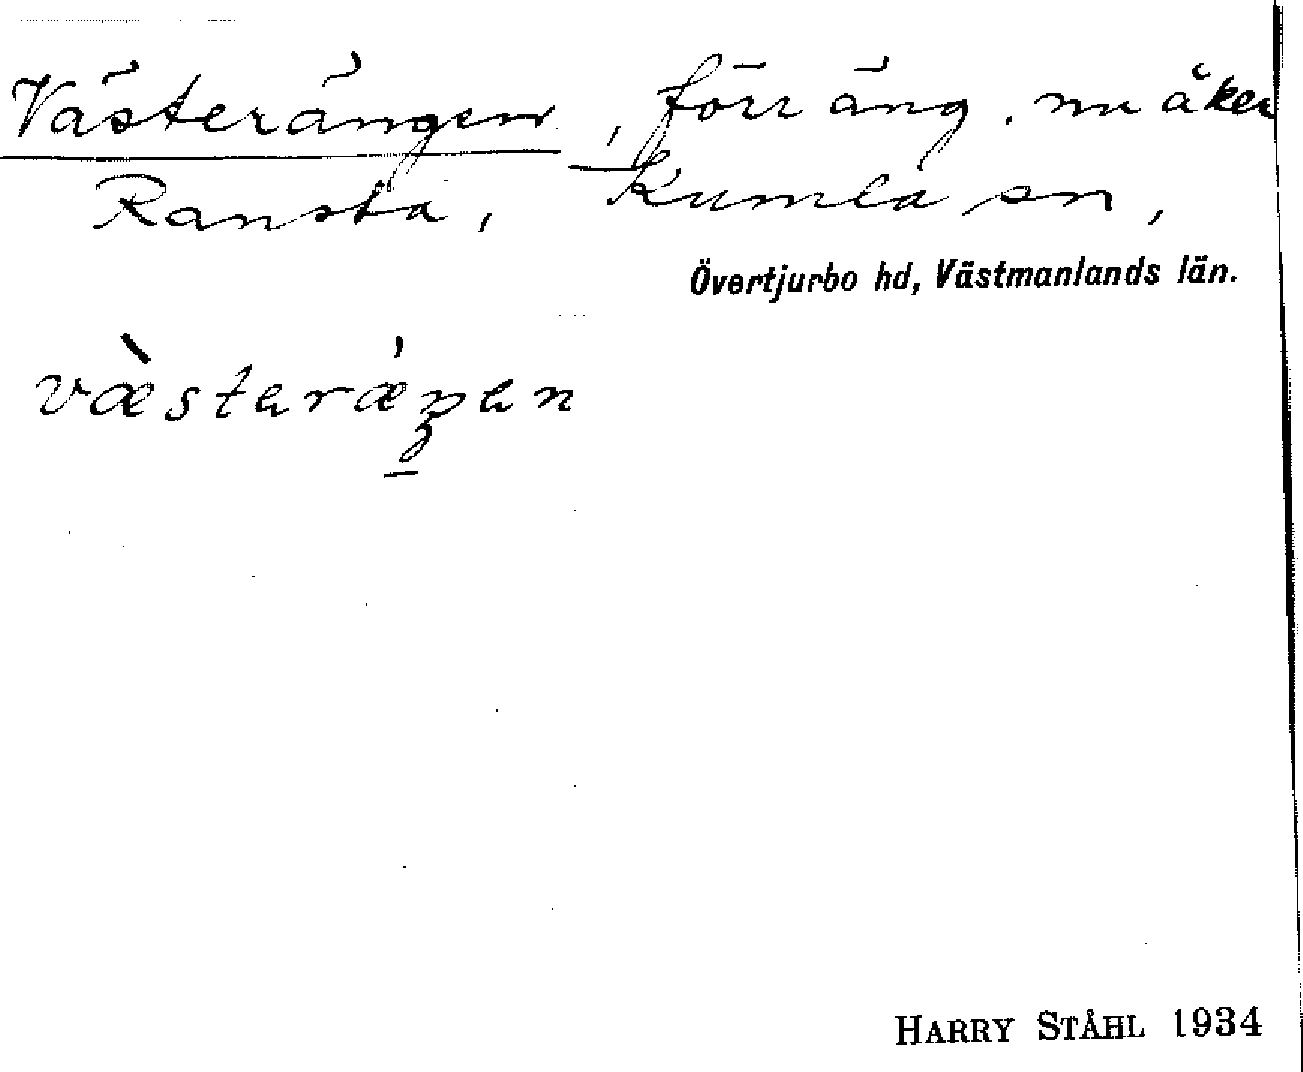 Västerängen, förr äng, nu åker
Ransta, Kumla sn,
Övertjurbo hd, Västmanlands län.
væ̀sterǽŋen
HARRY STÅHL 1934